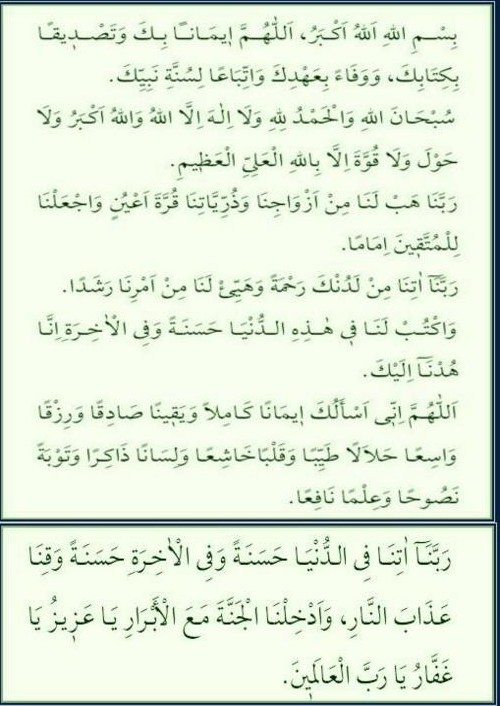 بِسْمِ اللهِ اَللهُ اَكْبَرُ، اَللّٰهُمَّ اِيمَانًا بِكَ وَتَصْدِيقًا
بِكِتَابِكَ، وَوَفَاءً بِعَهْدِكَ وَاتِّبَاعًا لِسُنَّةِ نَبِيِّكَ.
سُبْحَانَ اللهِ وَالْحَمْدُ لِلهِ وَلَا اِلٰهَ اِلَّا اللهُ وَاللهُ اَكْبَرُ وَلَا
حَوْلَ وَلَا قُوَّةَ اِلَّا بِاللهِ الْعَلِيِّ الْعَظِيمِ.
رَبَّنَا هَبْ لَنَا مِنْ اَزْوَاجِنَا وَذُرِّيَّاتِنَا قُرَّةَ اَعْيُنٍ وَاجْعَلْنَا
لِلْمُتَّقِينَ اِمَامًا.
رَبَّنَآ اٰتِنَا مِنْ لَدُنْكَ رَحْمَةً وَهَيِّئْ لَنَا مِنْ اَمْرِنَا رَشَدًا.
وَاكْتُبْ لَنَا فِي هٰذِهِ الدُّنْيَا حَسَنَةً وَفِي الْاٰخِرَةِ اِنَّا
هُدْنَآ اِلَيْكَ.
اَللّٰهُمَّ اِنِّي اَسْأَلُكَ اِيمَانًا كَامِلاً وَيَقِينًا صَادِقًا وَرِزْقًا
وَاسِعًا حَلَالًا طَيِّبًا وَقَلْبًا خَاشِعًا وَلِسَانًا ذَاكِرًا وَتَوْبَةً
نَصُوحًا وَعِلْمًا نَافِعًا.
رَبَّنَآ اٰتِنَا فِي الدُّنْيَا حَسَنَةً وَفِي الْاٰخِرَةِ حَسَنَةً وَقِنَا
عَذَابَ النَّارِ، وَاَدْخِلْنَا الْجَنَّةَ مَعَ الْأَبْرَارِ يَا عَزِيزُ يَا
غَفَّارُ يَا رَبَّ الْعَالَمِينَ.